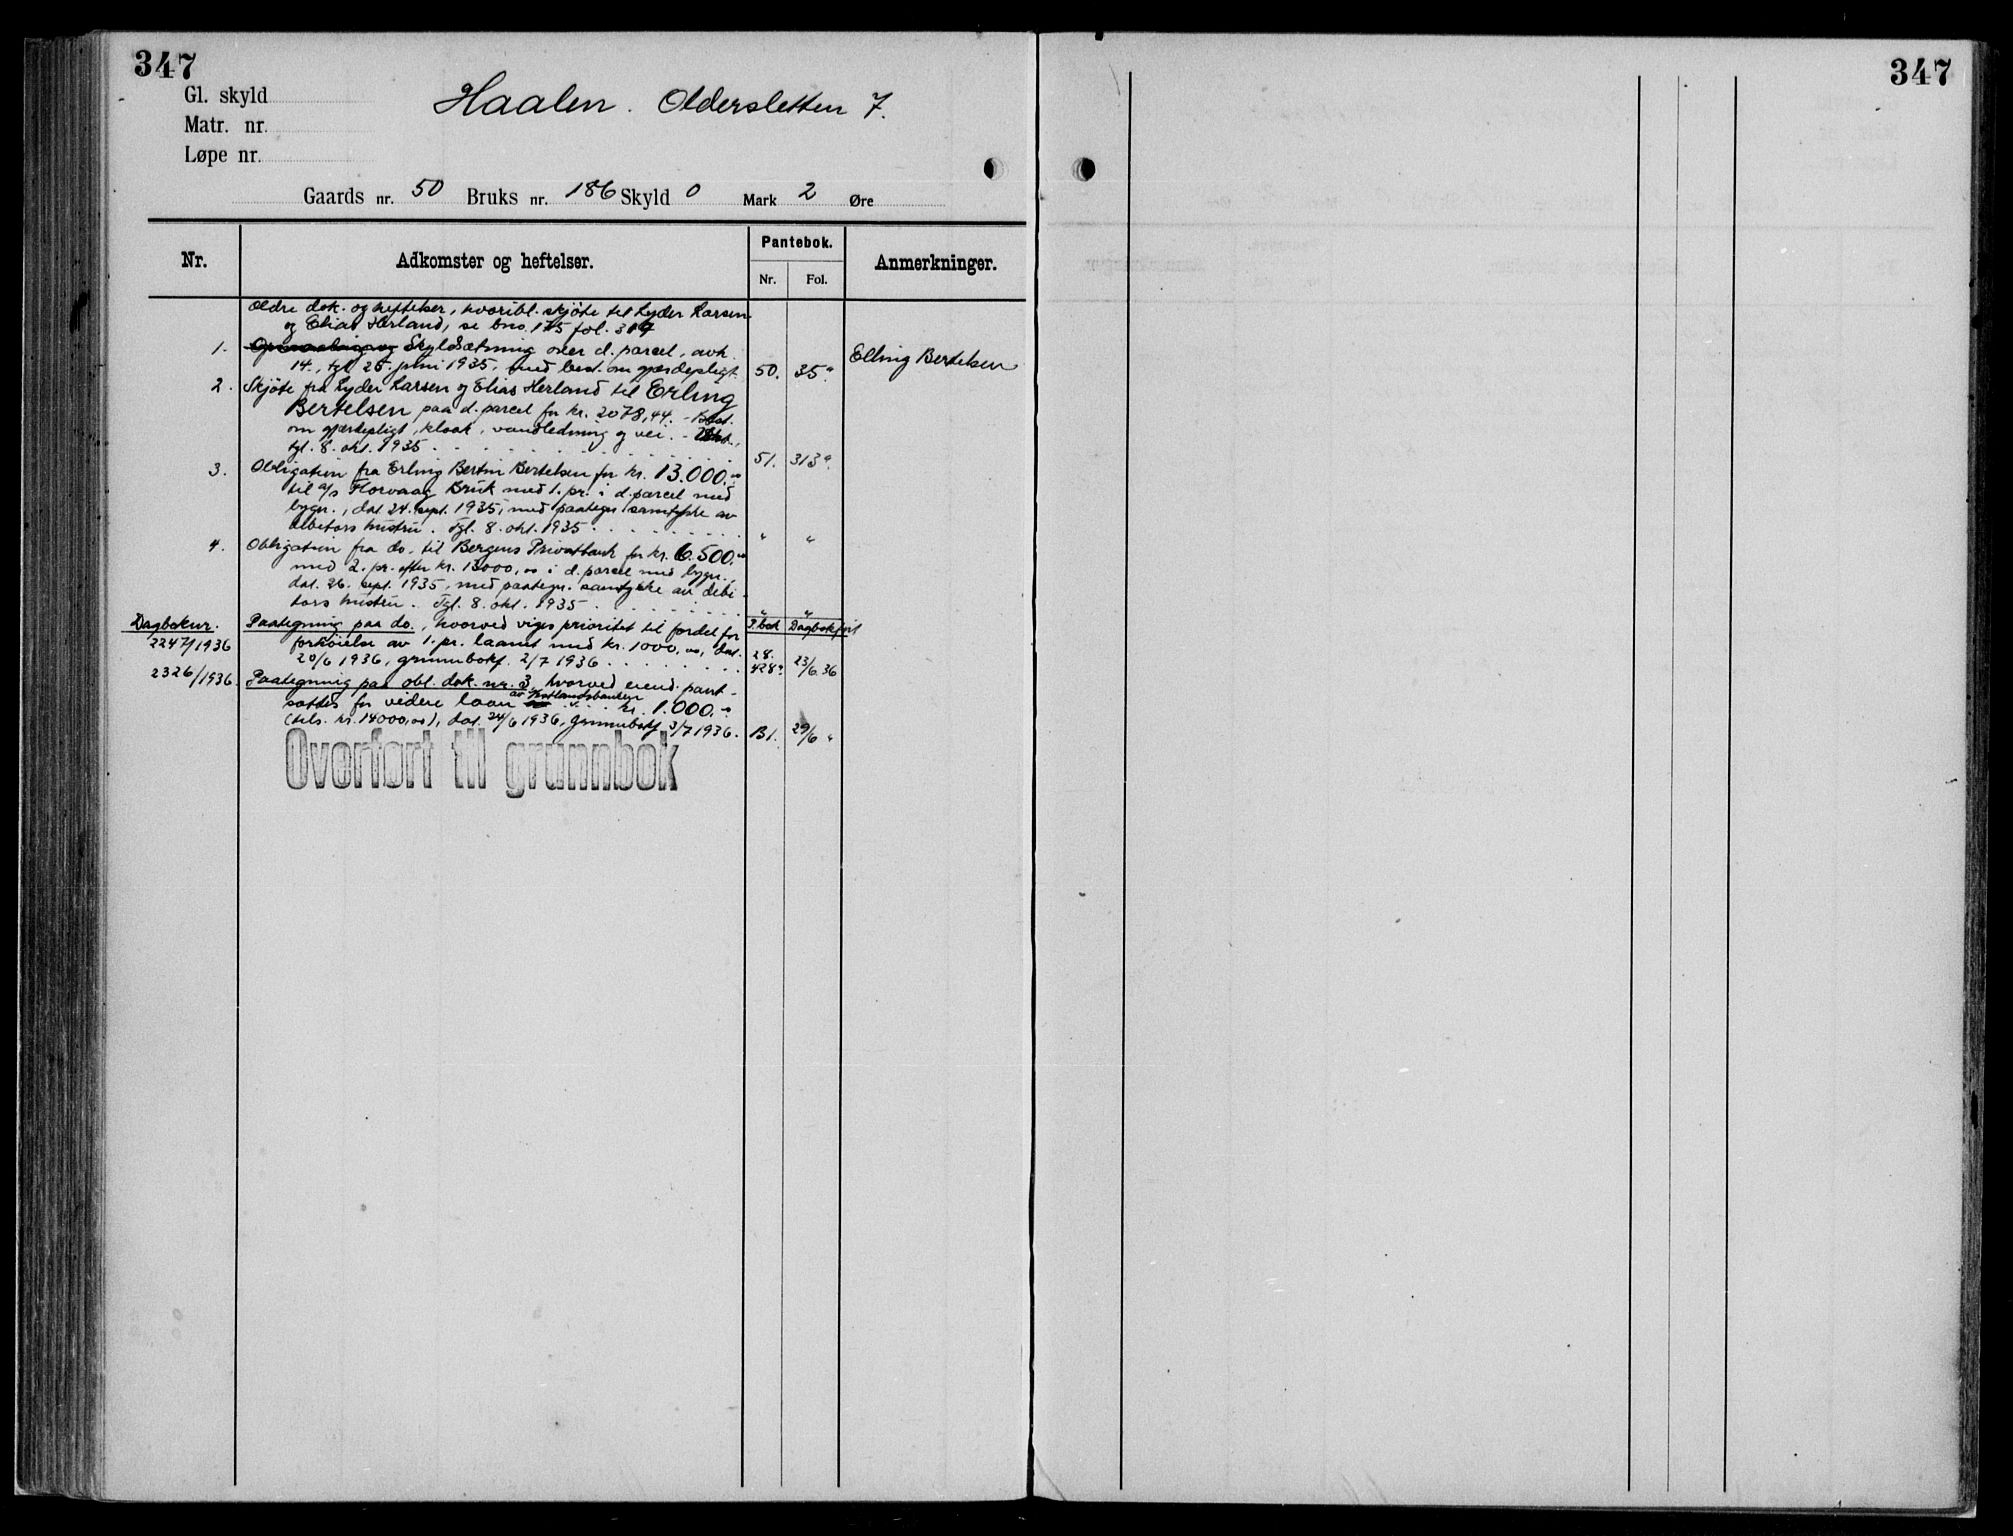 347
347
Gl. skyld
Matr. nr.
Løpe nr.
Haalen. Oldersletten 7.
Gaards nr. 50 Bruks nr. 186 Skyld 0 Mark 2 Øre
Nr. Adkomster og heftelser. Pantebok. Anmerkninger.
Nr. Fol.
Oldre dok. og heftelser, hvoribl. skjøte til Lyder Larsen
og Elias Herland, se bno. 175 fol. 317
1. Skyldsætning over d. parcel, avh.
14., tgl. 25. juni 1935, med best. om gjærdepligt 50. 35ª. Elling Bertelsen
2. Skjøte fra Lyder Larsen og Elias Herland til Erling
Bertelsen paa d. parcel for kr. 2078,44. - Best.
om gjærdepligt, kloak, vandledning og vei. -
tgl. 8. okt. 1935 . . . 51. 313ª.
3. Obligation fra Erling Bertin Bertelsen for kr. 13.000.00
til a/s Florvaag Bruk med 1. pr. i d. parcel med
bygn., dat. 24. sept. 1935, med paategn. samtykke av
debitors hustru. Tgl. 8. okt. 1935 . . . " "
4. Obligation fra do. til Bergens Privatbank for kr. 6.500.00
med 2. pr. efter kr. 13000,00 i d. parcel med bygn.,
dat. 26. sept. 1935, med paategn. samtykke av debi-
tors hustru. Tgl. 8. okt. 1935 . . . " "
Dagboknr. Paategning paa do., hvorved viges prioritet til fordel for P.bok Dagbokført
2247/1936 forhøielse av 1. pr. laanet med kr. 1000,00, dat.
20/6 1936, grunnbokf. 2/7 1936 . . . 28. 428ª 23/6 36
2326/1936. Paategning paa obl. dok. nr. 3, hvorved eiend. pant-
sættes for videre laan av Vestlandsbanken kr. 1.000.00
(tils. kr. 14000,00), dat. 24/6 1936, grunnbokf. 3/7 1936. B1. 29/6 "
Overført til grunnbok